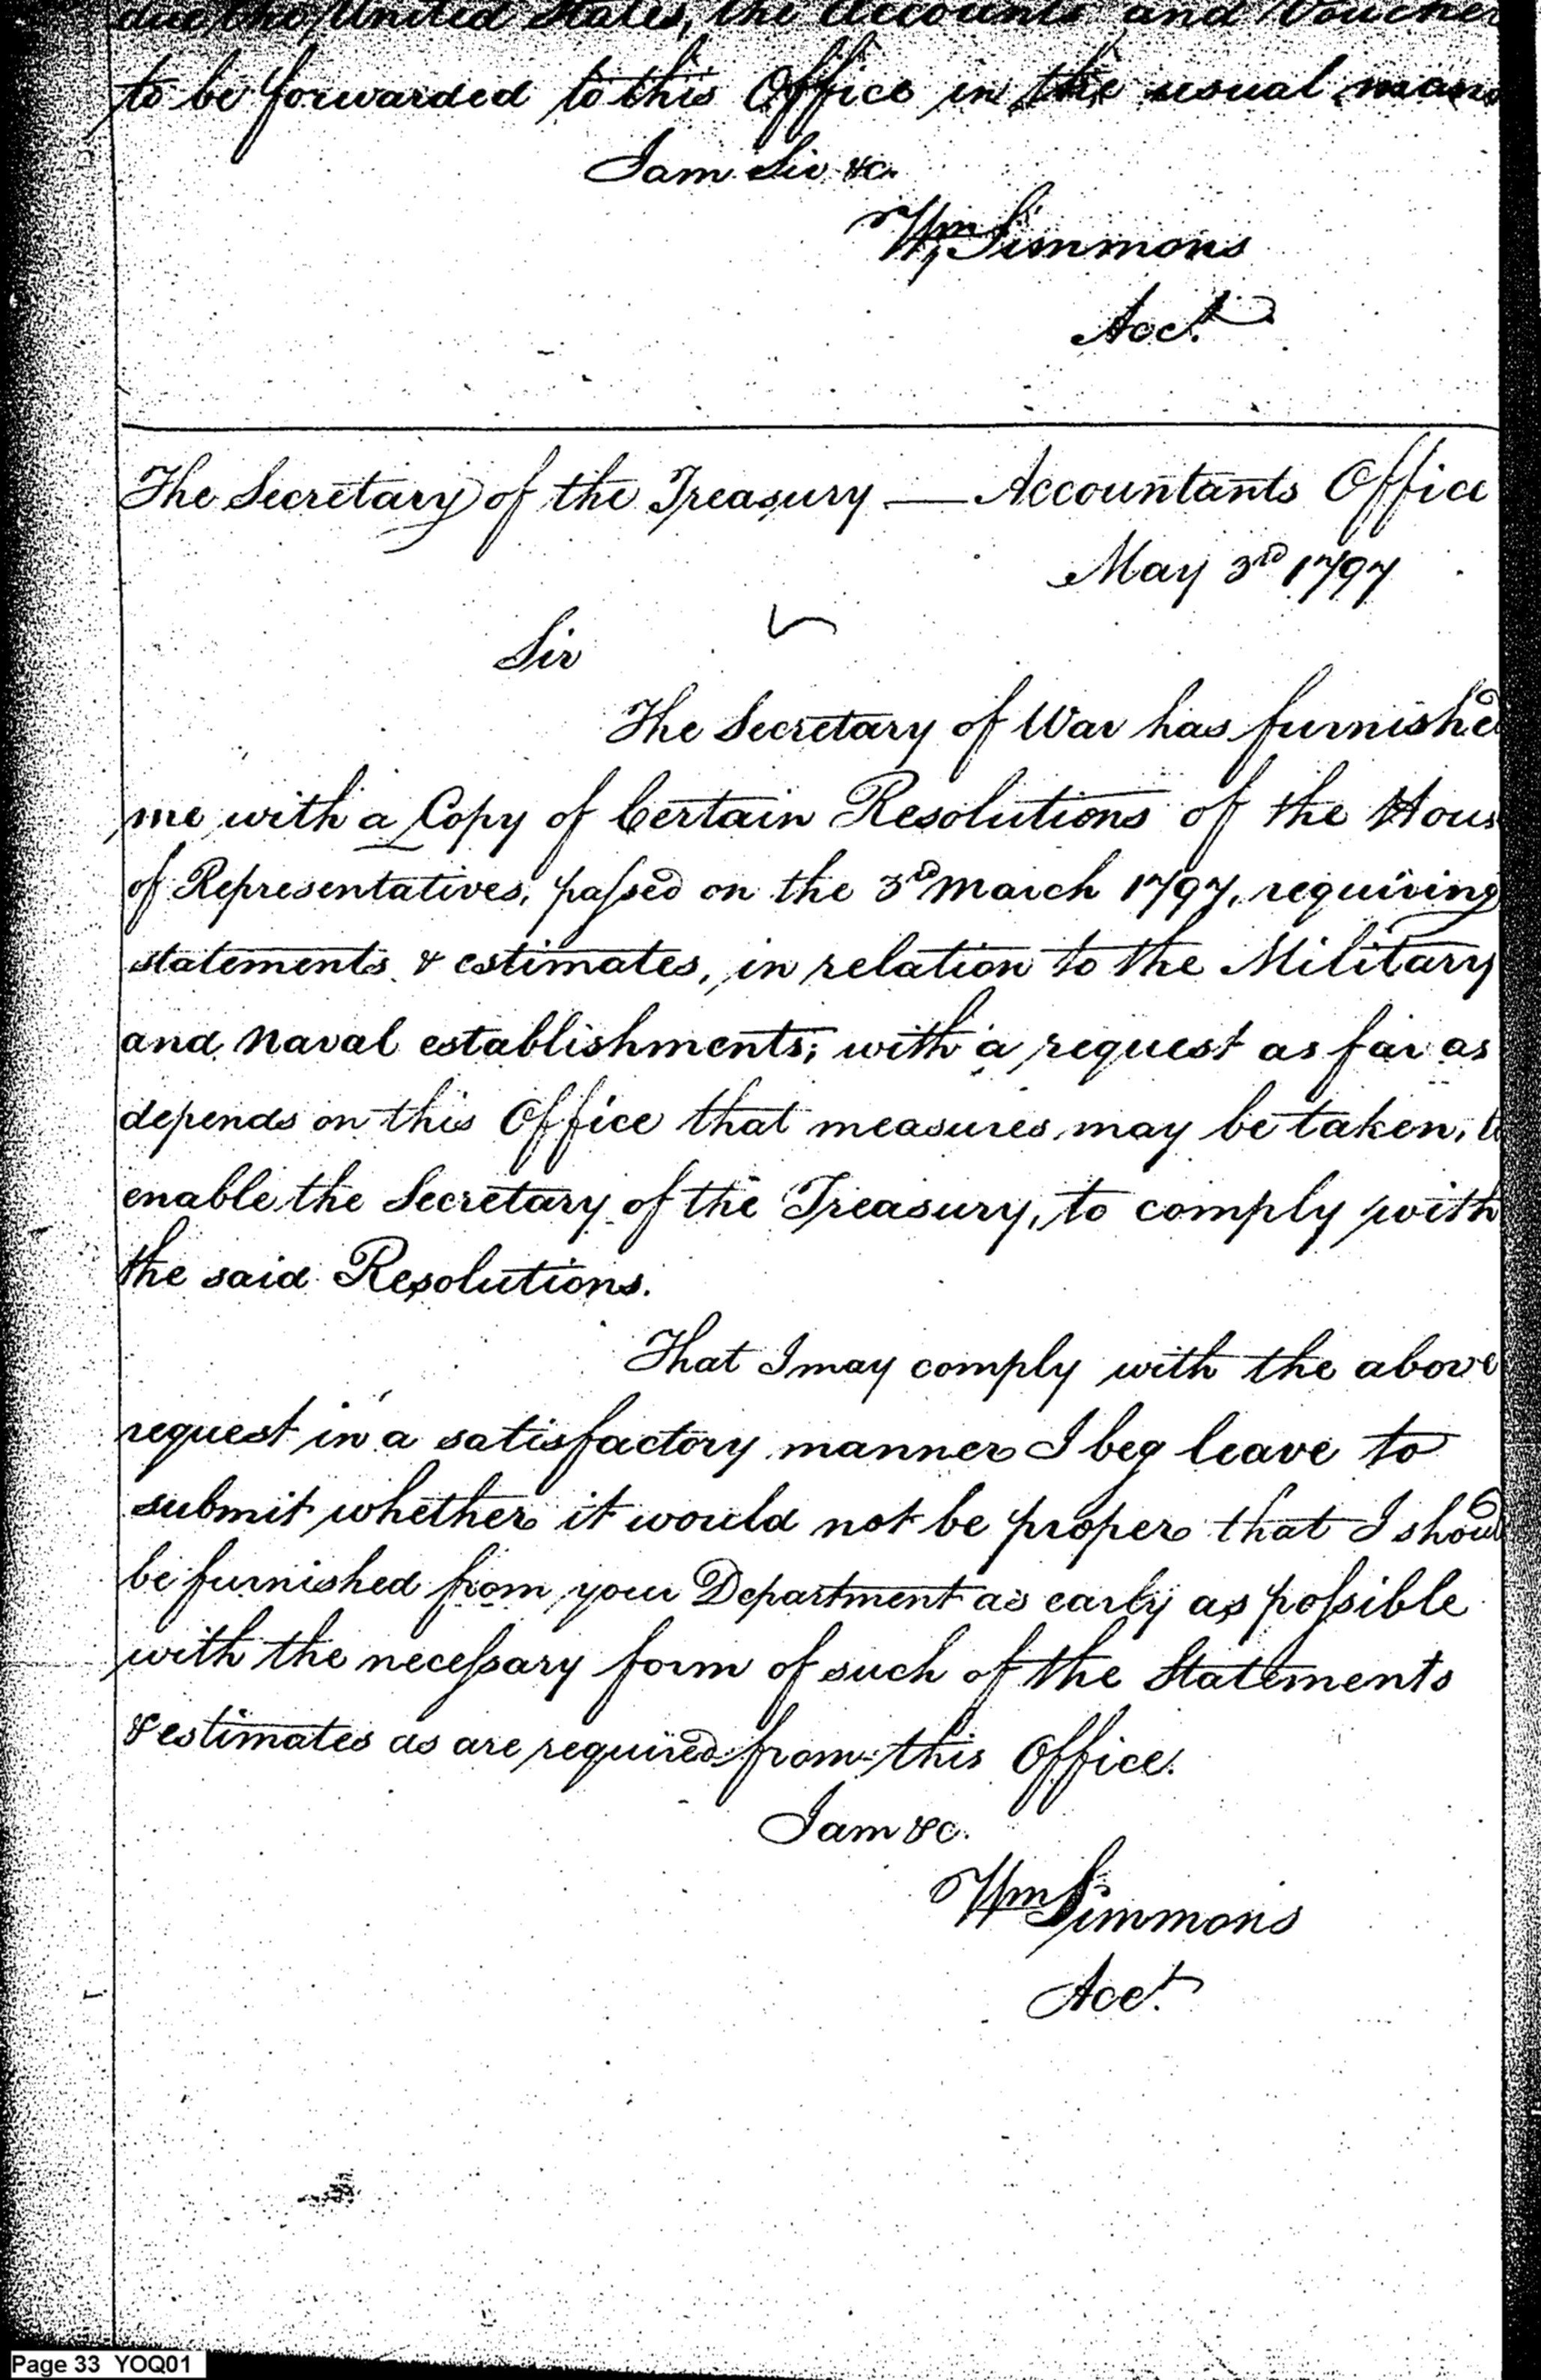 due the United States, the Accounts and Voucher
to be forwarded to this Office in the usual mann
I am Sir &c.
Wm Simmons
Acct.
The Secretary of the Treasury — Accountants Office
May 3rd 1797
Sir
The Secretary of War has furnished
me with a Copy of Certain Resolutions of the Hous
of Representatives, paſsed on the 3d March 1797, requiring
statements & estimates, in relation to the Military
and Naval establishments; with a request as far as
depends on this Office that measures may be taken, to
enable the Secretary of the Treasury, to comply with
the said Resolutions.
That I may comply with the above
request in a satisfactory manner I beg leave to
submit whether it would not be proper that I should
be furnished from your Department as early as poſsible
with the neceſsary form of such of the Statements
& estimates as are required from this Office.
I am &c.
Wm Simmons
Acct.
Page 33 YOQ01